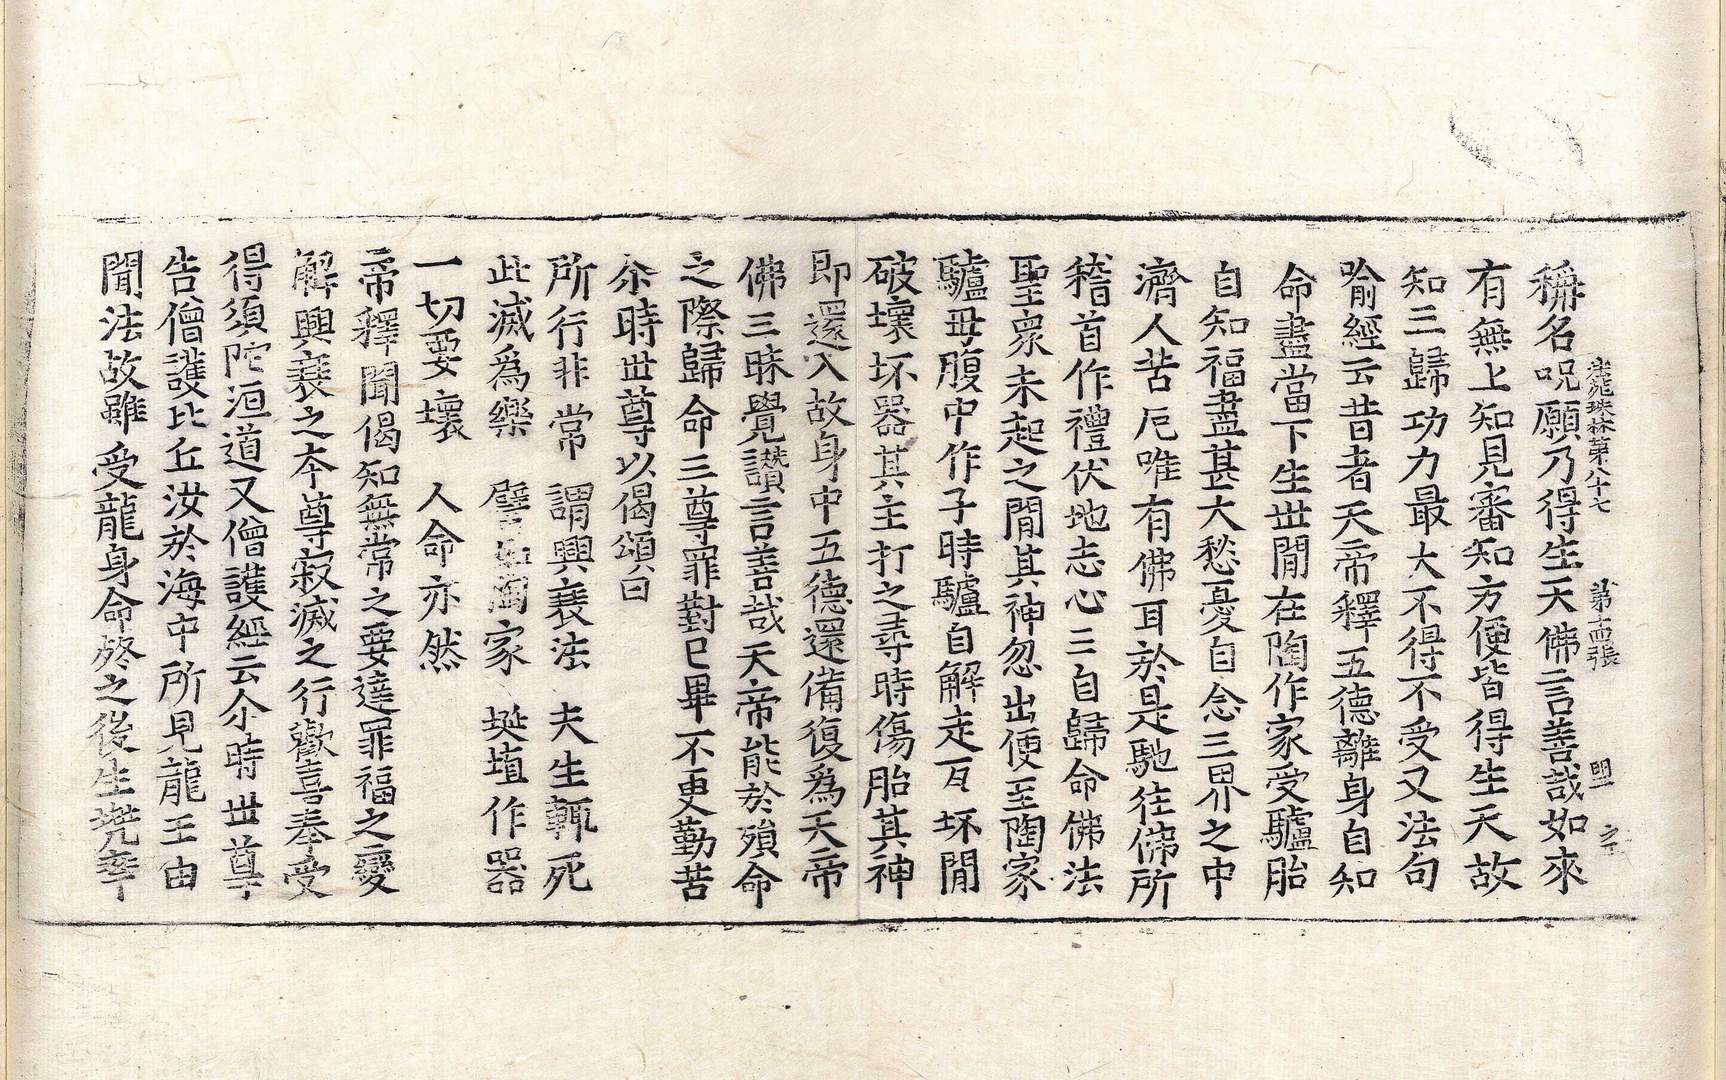 法苑珠林第八十七 第十四張 㽵
稱名呪願乃得生天佛言善哉如來
有無上知見審知方便皆得生天故
知三歸功力最大不得不受又法句
喻經云昔者天帝釋五德離身自知
命盡當下生世間在陶作家受驢胎
自知福盡甚大愁憂自念三界之中
濟人苦厄唯有佛耳於是馳往佛所
稽首作禮伏地志心三自歸命佛法
聖衆未起之閒其神忽出便至陶家
驢母腹中作子時驢自解走瓦坏閒
破壞坏器其主打之尋時傷胎其神
即還入故身中五德還備復爲天帝
佛三昧覺讚言善哉天帝能於殞命
之際歸命三尊罪對已畢不更勤苦
尒時世尊以偈頌曰
所行非常 謂興衰法 夫生輒死
此滅爲樂 譬如陶家 埏埴作器
一切要壞 人命亦然
帝釋聞偈知無常之要達罪福之變
解興衰之本尊寂滅之行歡喜奉受
得須陀洹道又僧護經云尒時世尊
告僧護比丘汝於海中所見龍王由
聞法故雖受龍身命終之後生兜率